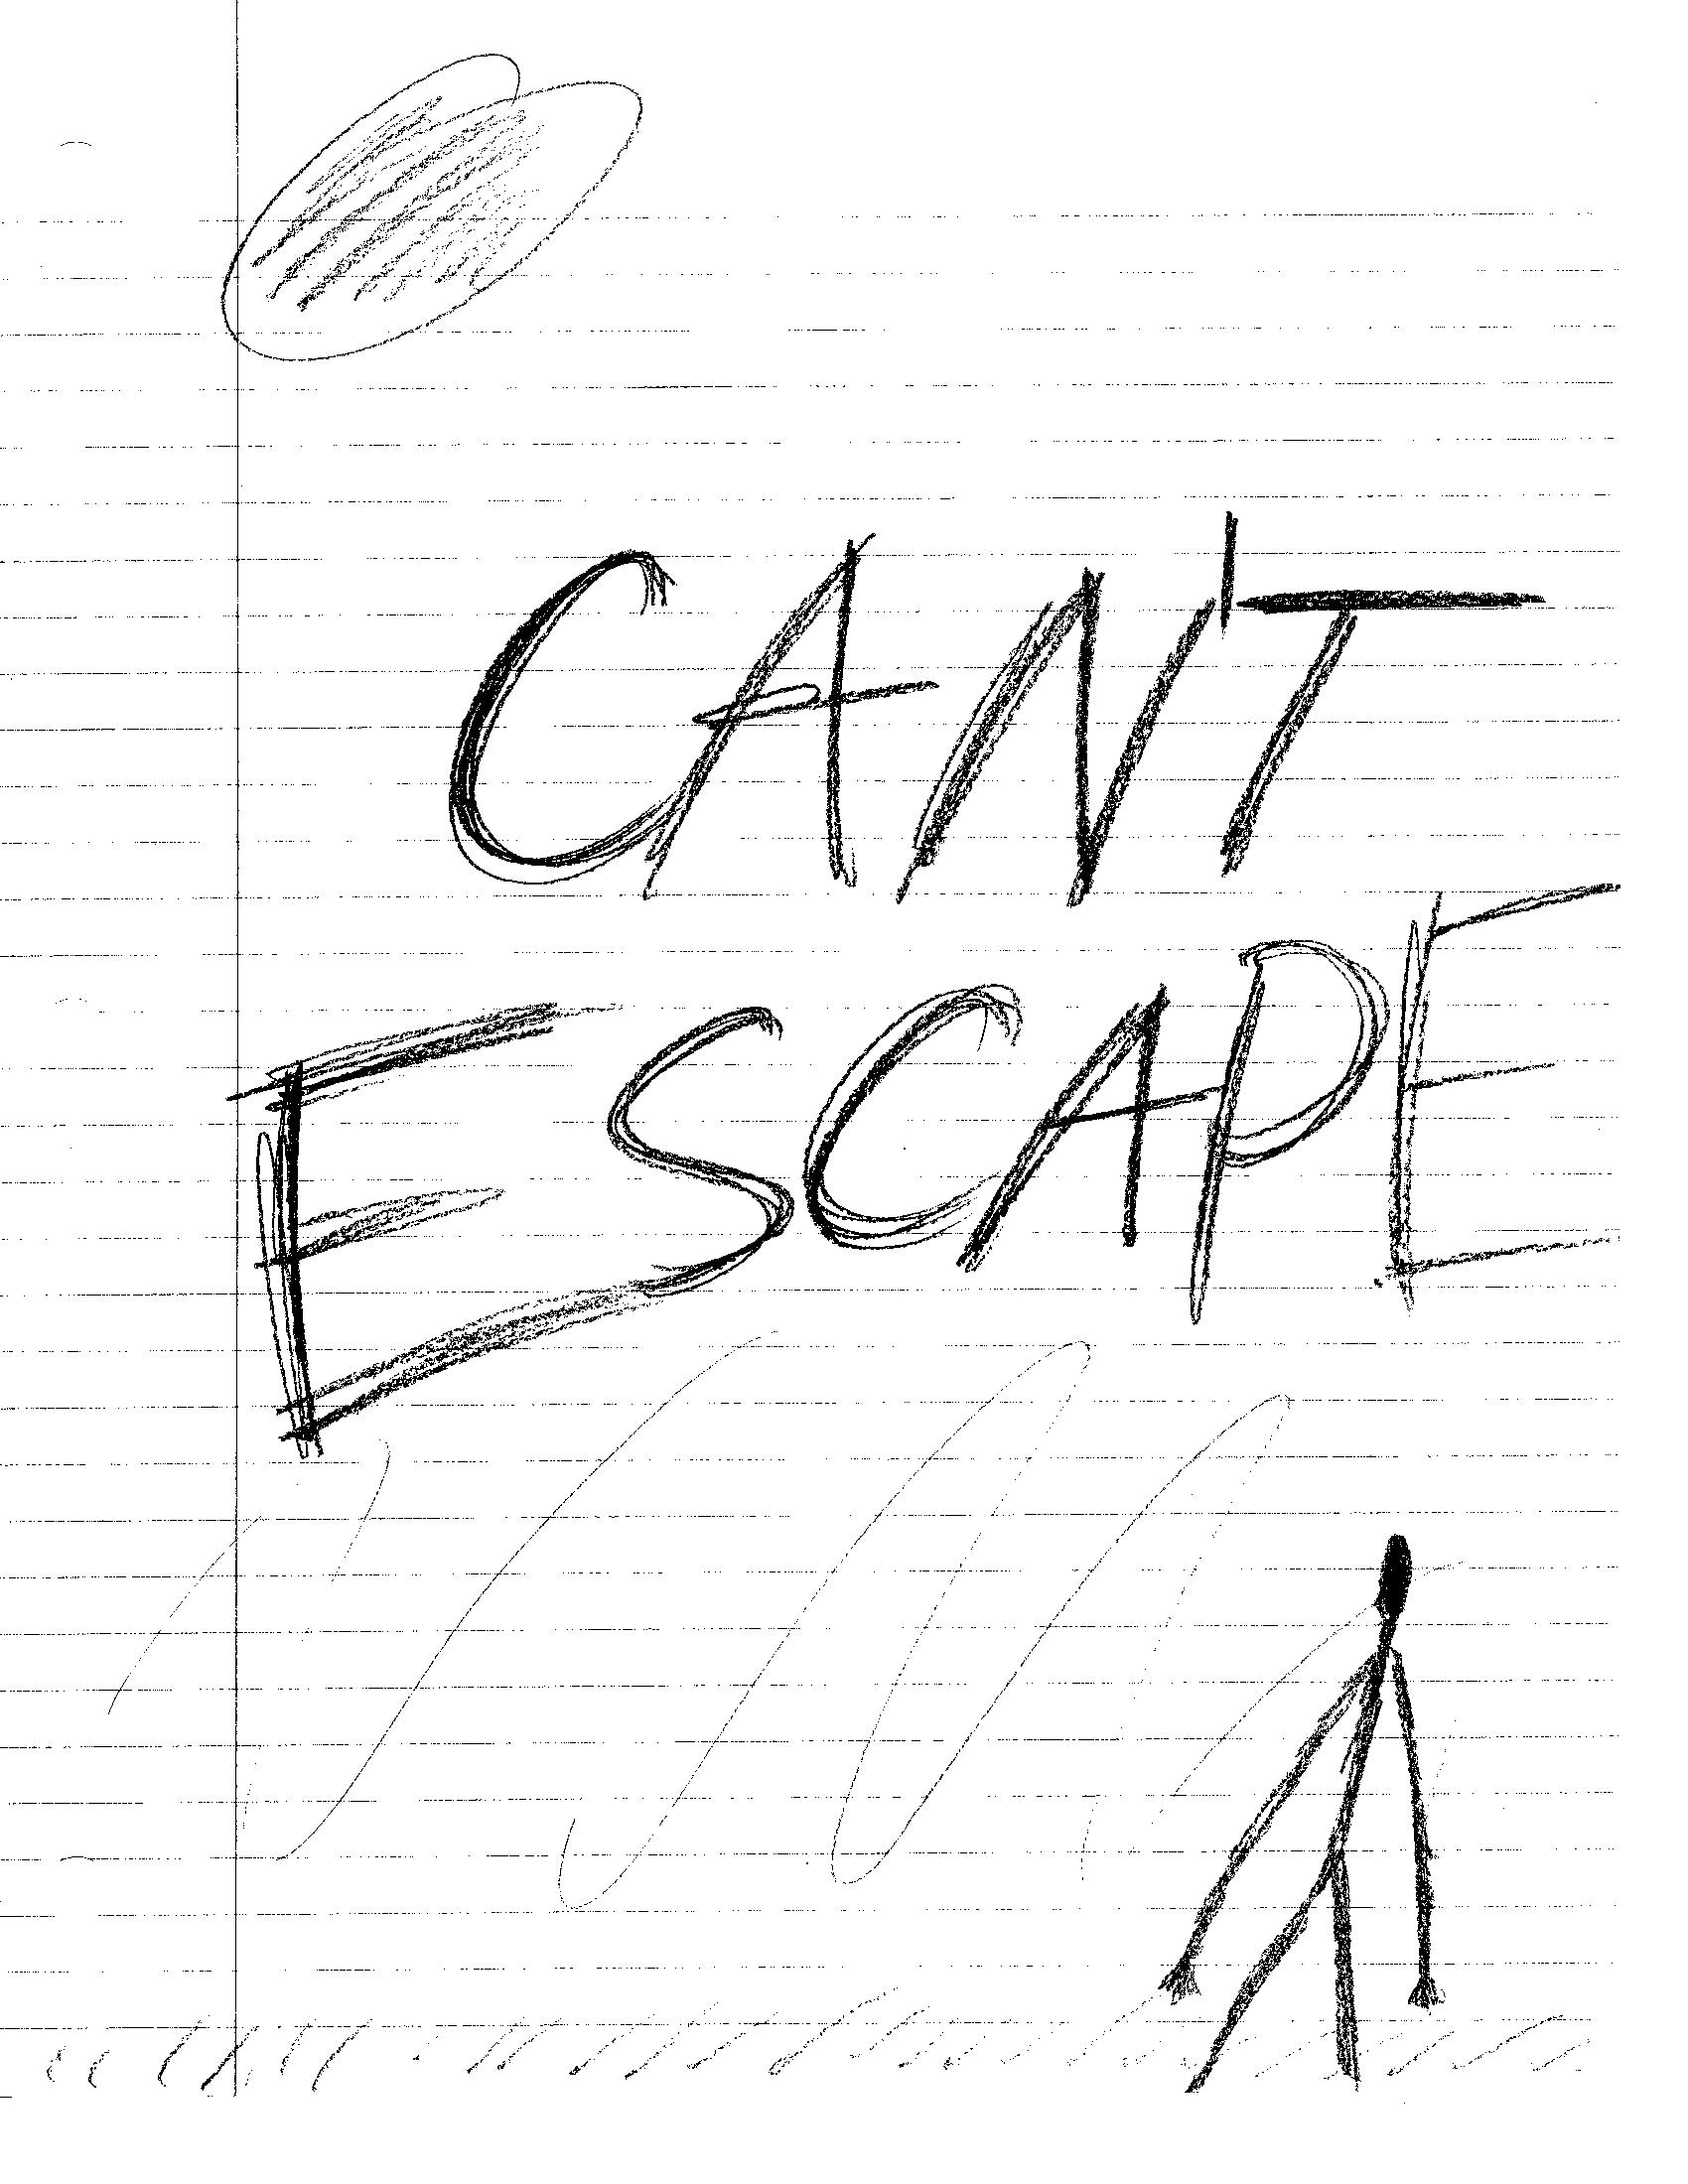 CAN'T
ESCAPE